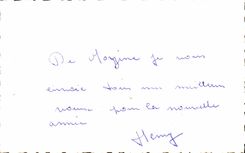 De Morzine je vous
envoie tous mes meilleurs
voeux pour la nouvelle
année
Henry